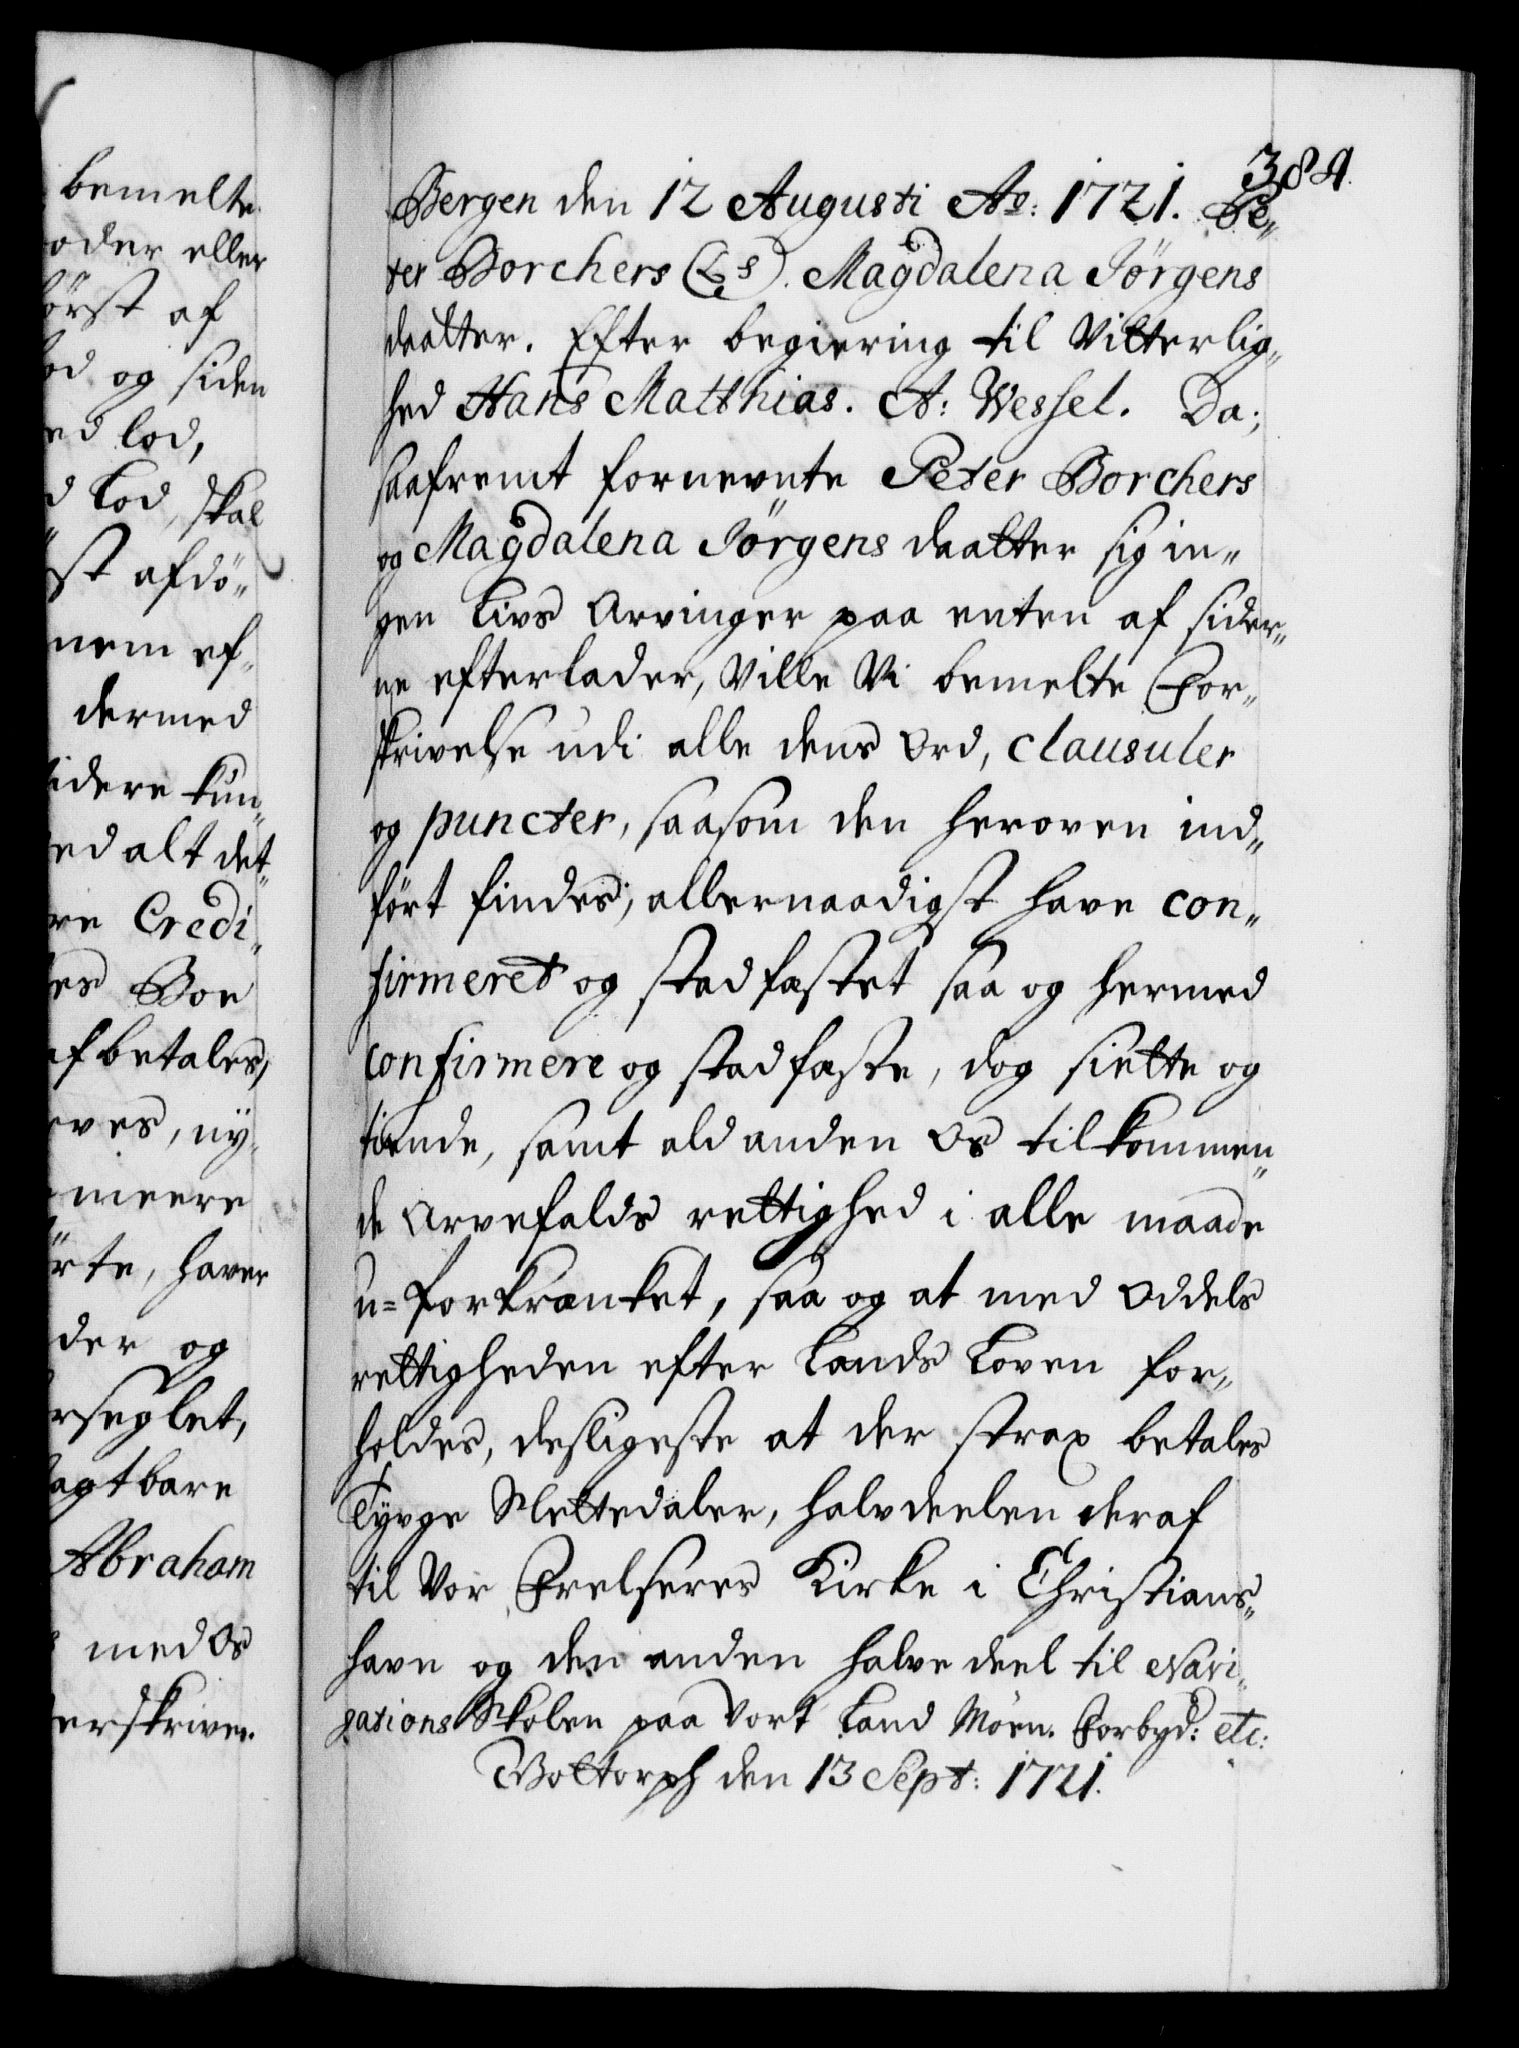 bemelte
oder eller
først af
lod og siden
ed lod,
d Lod, skal
st afdø„
nem ef„
dermed
idere kun„
ed alt det„
re Credi„
es Boe
afbetales,
eves, ny„
meere
ørte, haver
der og
rseglet,
agtbare
Abraham
med os
erskriven.
384.
Bergen den 12 Augusti Ao: 1721. Pe„
ter Borchers (LS). Magdalena Jörgens
daatter. Efter begiering til Vitterlig„
hed Hans Matthias. A: Wessel. Da,
saafremt fornevnte Peter Borchers
og Magdalena Jörgens daatter sig in„
gen Livs Arvinger paa enten af sider„
ne efterlader, Ville Vi bemelte For„
skrivelse udi alle dens Ord, clausuler
og puncter, saasom den heroven ind„
ført findes, allernaadigst have con„
firmeret og stadfæstet saa og hermed
confirmere og stadfæste, dog siette og
tiende, samt ald anden Os tilkommen„
de Arvefalds rettighed i alle maade
u=forkrænket, saa og at med Oddels
rettigheden efter Lands Loven for„
holdes, desligeste at der strax betales
Tyvge Slettedaler, halvdeelen deraf
til Vor Frelseres Kirke i Christians„
havn og den anden halve deel til Navi„
gations Skolen paa Vort Land Møen. Forbyd: etc:
Gottorph den 13 Sept: 1721.